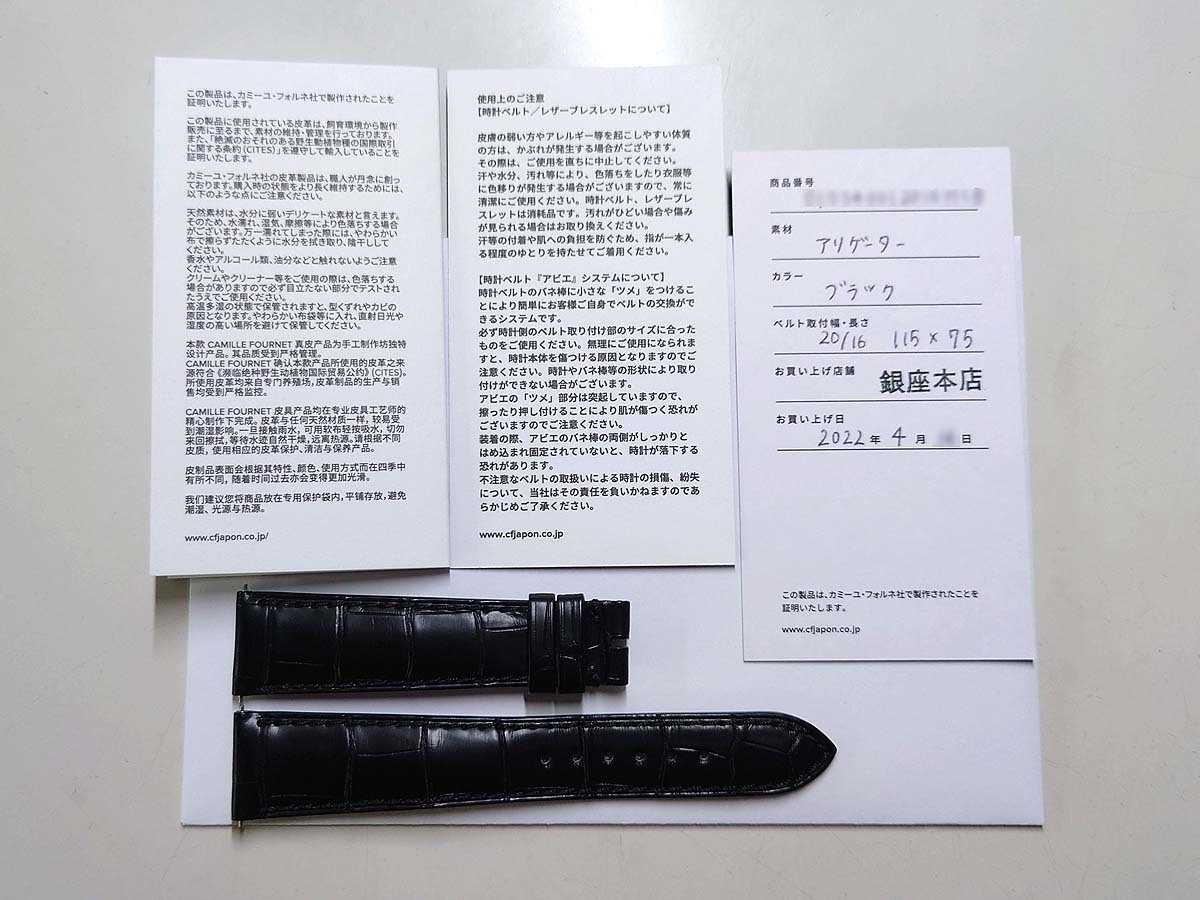 この製品は、カミーユ・フォルネ社で製作されたことを
証明いたします。
この製品に使用されている皮革は、飼育環境から製作
販売に至るまで、素材の維持・管理を行っております。
また、「絶滅のおそれのある野生動植物種の国際取引
に関する条約（CITES）」を遵守して輸入していることを
証明いたします。
カミーユ・フォルネ社の皮革製品は、職人が丹念に創っ
ております。購入時の状態をより長く維持するためには、
以下のような点にご注意ください。
天然素材は、水分に弱いデリケートな素材と言えます。
そのため、水濡れ、湿気、摩擦等により色落ちする場合
がございます。万一濡れてしまった際には、やわらかい
布で擦らずたたくように水分を拭き取り、陰干しして
ください。
香水やアルコール類、油分などと触れないようご注意
ください。
クリームやクリーナー等をご使用の際は、色落ちする
場合がありますので必ず目立たない部分でテストされ
たうえでご使用ください。
高温多湿の状態で保管されますと、型くずれやカビの
原因となります。やわらかい布袋等に入れ、直射日光や
湿度の高い場所を避けて保管してください。
本款 CAMILLE FOURNET 真皮产品为手工制作坊独特
设计产品。其品质受到严格管理。
CAMILLE FOURNET 确认本款产品所使用的皮革之来
源符合《濒临绝种野生动植物国际贸易公约》(CITES)。
所使用皮革均来自专门养殖场，皮革制品的生产与销
售均受到严格监控。
CAMILLE FOURNET 皮具产品均在专业皮具工艺师的
精心制作下完成。皮革与任何天然材质一样，较易受
到潮湿影响。一旦接触雨水，可用软布轻按吸水，切勿
来回擦拭，等待水迹自然干燥，远离热源。请根据不同
皮质，使用相应的皮革保护、清洁与保养产品。
皮制品表面会根据其特性、颜色、使用方式而在四季中
有所不同，随着时间过去亦会变得更加光滑。
我们建议您将商品放在专用保护袋内，平铺存放，避免
潮湿、光源与热源。
www.cfjapon.co.jp/
使用上のご注意
【時計ベルト／レザーブレスレットについて】
皮膚の弱い方やアレルギー等を起こしやすい体質
の方は、かぶれが発生する場合がございます。
その際は、ご使用を直ちに中止してください。
汗や水分、汚れ等により、色落ちをしたり衣服等
に色移りが発生する場合がございますので、常に
清潔にご使用ください。時計ベルト、レザーブレ
スレットは消耗品です。汚れがひどい場合や傷み
が見られる場合はお取り換えください。
汗等の付着や肌への負担を防ぐため、指が一本入
る程度のゆとりを持たせてご着用ください。
【時計ベルト『アビエ』システムについて】
時計ベルトのバネ棒に小さな「ツメ」をつけるこ
とにより簡単にお客様ご自身でベルトの交換がで
きるシステムです。
必ず時計側のベルト取り付け部のサイズに合った
ものをご使用ください。無理にご使用になられま
すと、時計本体を傷つける原因となりますのでご
注意ください。時計やバネ棒等の形状により取り
付けができない場合がございます。
アビエの「ツメ」部分は突起していますので、
擦ったり押し付けることにより肌が傷つく恐れが
ございますのでご注意ください。
装着の際、アビエのバネ棒の両側がしっかりと
はめ込まれ固定されていないと、時計が落下する
恐れがあります。
不注意なベルトの取扱いによる時計の損傷、紛失
について、当社はその責任を負いかねますのであ
らかじめご了承ください。
www.cfjapon.co.jp
商品番号
素材
アリゲーター
カラー
ブラック
ベルト取付幅・長さ
20/16 115×75
お買い上げ店舗
銀座本店
お買い上げ日
2022年 4月 日
この製品は、カミーユ・フォルネ社で製作されたことを
証明いたします。
www.cfjapon.co.jp